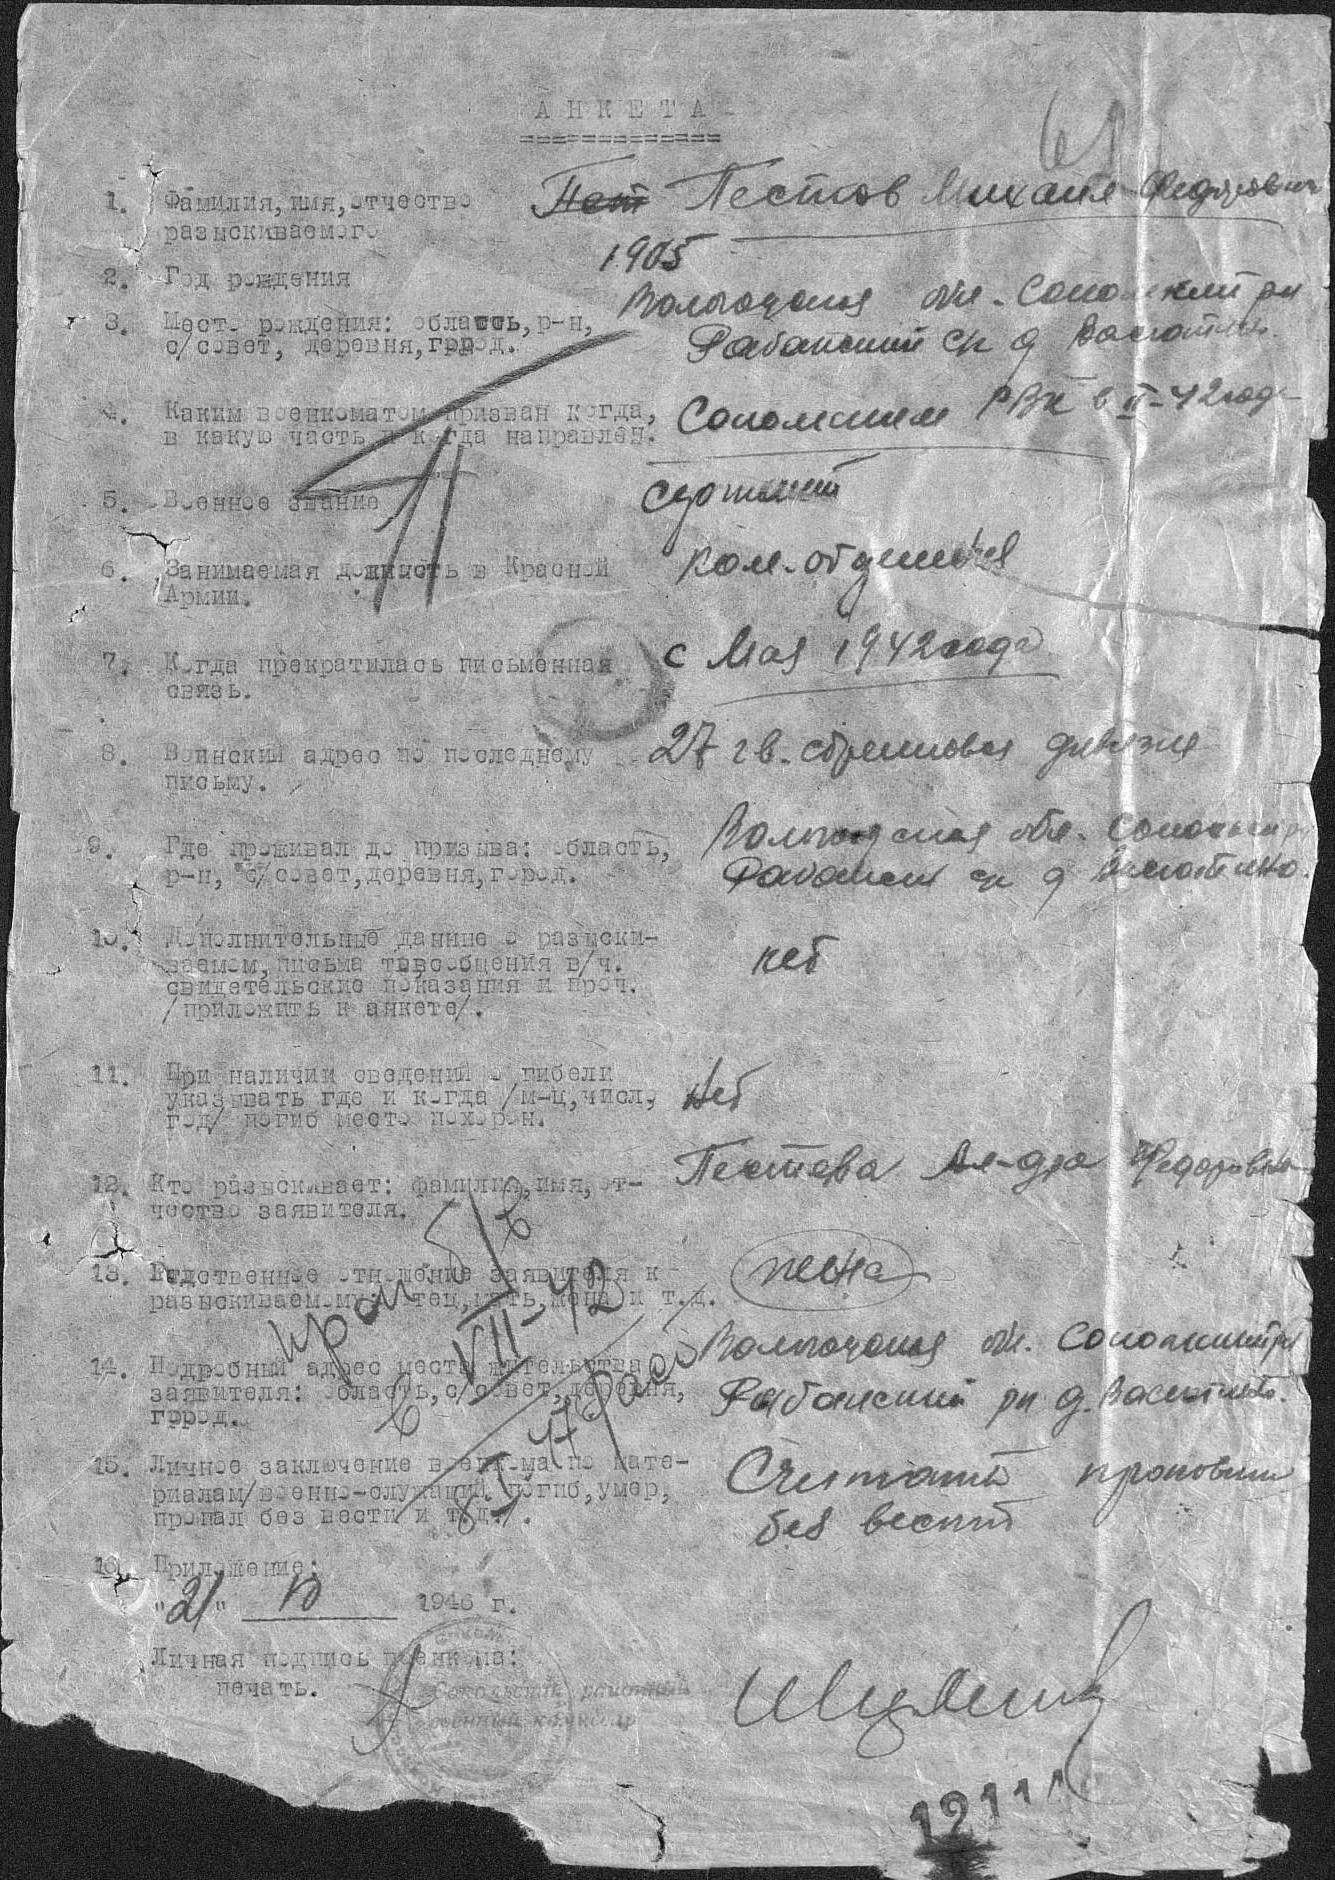 АНКЕТА
1. Фамилия, имя, отчество Пест Пестов Михаил Федорович
разыскиваемого
2. Год рождения 1905
3. Место рождения: область, р-н, Вологодская обл. Сокольский рн
с/совет, деревня, город. Рабанский ср д
4. Каким военкоматом призван когда, Сокольским РВК в II-42 года
в какую часть и когда направлен.
5. Военное звание сержант
6. Занимаемая должность в Красной ком. отделения
Армии.
7. Когда прекратилась письменная с Мая 1942 года
связь.
8. Воинский адрес по последнему 27 гв. стрелковая дивизия
письму.
9. Где проживал до призыва: область, Вологодская обл. Сокольский
р-н, с/совет, деревня, город. Рабанский ср д
10. Дополнительные данные о разыски-
ваемом, письма тов. сообщения в/ч. нет
свидетельские показания и проч.
/приложить к анкете/.
11. При наличии сведений о гибели
указывать где и когда /м-ц, число, Нет
год/ погиб место похорон.
12. Кто разыскивает: фамилия, имя, от- Пестова Ал-дра Федоровна
чество заявителя.
13. Родственное отношение заявителя к жена
разыскиваемому: отец, мать, жена и т.д.
14. Подробный адрес места жительства Вологодская обл. Сокольский рн
заявителя: область, с/совет, деревня, Рабанский рн д.
город.
15. Личное заключение военкома по мате- Считать пропавшим
риалам/военно-служащий погиб, умер, без вести
пропал без вести и т.д./.
16. Приложение:
"21" 1946 г.
Личная подпись военкома:
печать.
Сокольский районный
военный комиссар
проп б/в
в VII-42